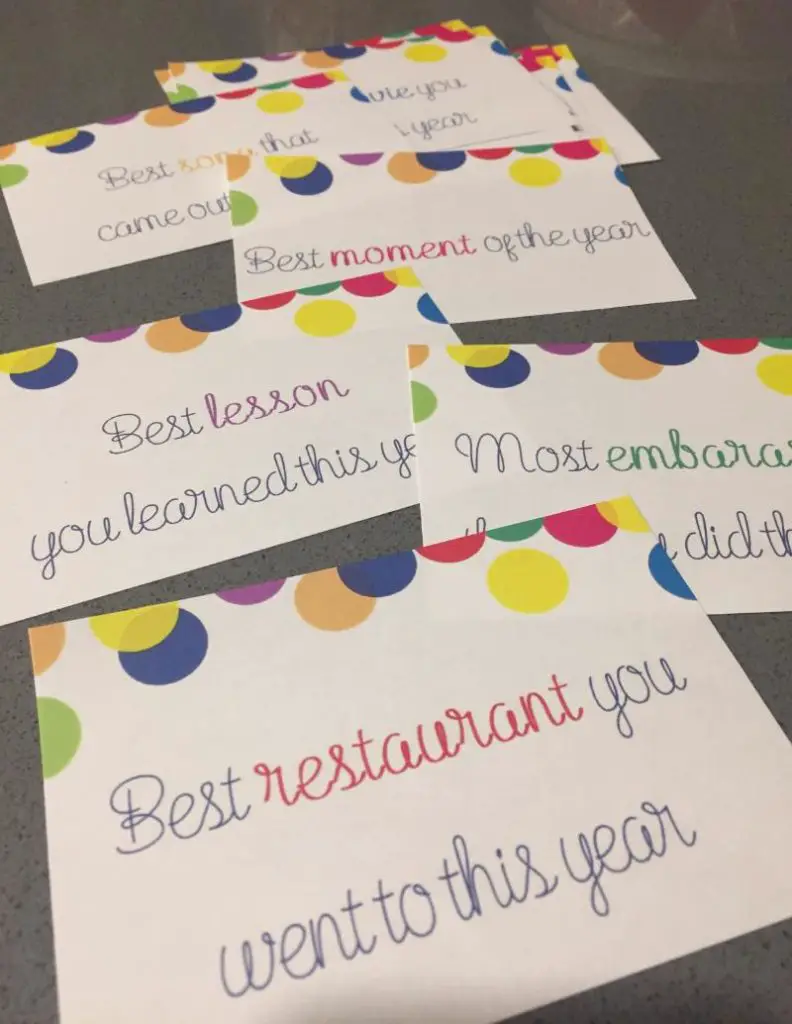 you
year
Best song that
came out
Best moment of the year
Best lesson
you learned this
Most embaras
did
Best restaurant you
went to this year